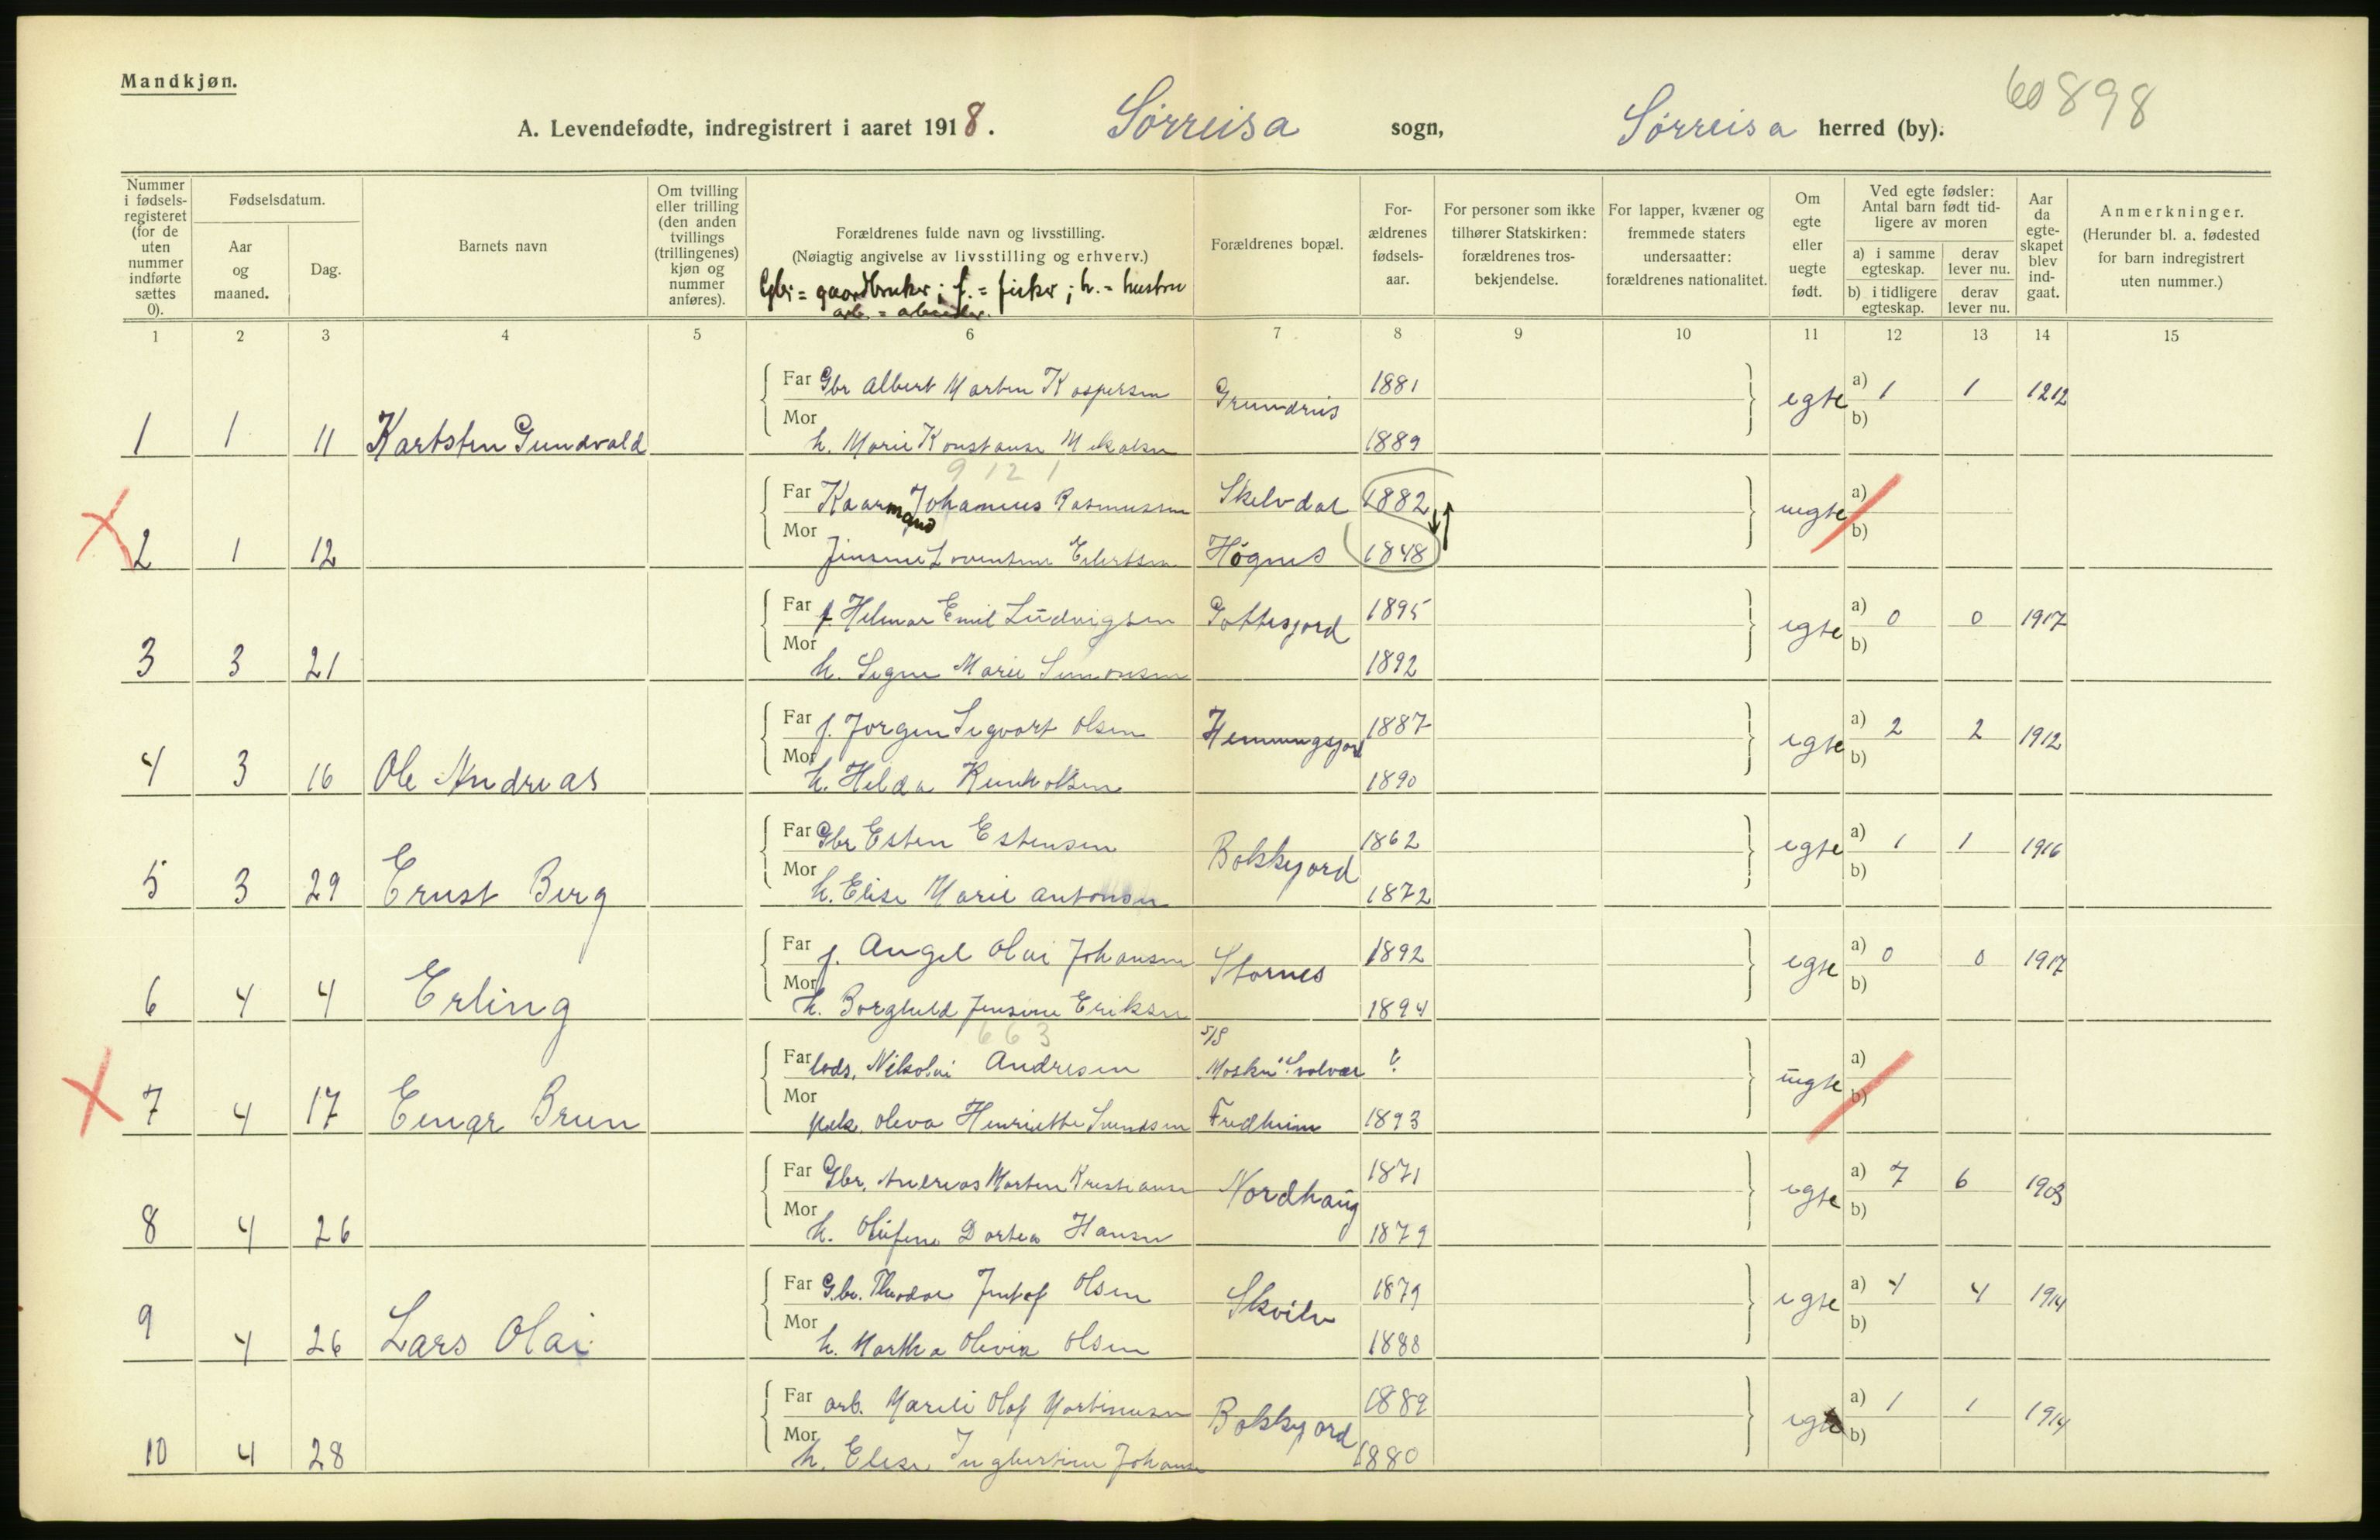 Mandkjøn.
60898
A. Levendefødte, indregistrert i aaret 1918. Sørreisa sogn, Sørreisa herred (by).
Nummer i fødselsregisteret (for de uten nummer indførte sættes 0).
Fødselsdatum.
Aar og maaned.
Dag.
Barnets navn
Om tvilling eller trilling (den anden tvillings (trillingenes) kjøn og nummer anføres).
Forældrenes fulde navn og livsstilling.
(Nøiagtig angivelse av livsstilling og erhverv.)
Gbr = gaardbruker; f. = fisker; h. = hustru
arb. = arbeider.
Forældrenes bopæl.
Forældrenes fødselsaar.
For personer som ikke tilhører Statskirken: forældrenes trosbekjendelse.
For lapper, kvæner og fremmede staters undersaatter: forældrenes nationalitet.
Om egte eller uegte født.
Ved egte fødsler: Antal barn født tidligere av moren
a) i samme egteskap. derav lever nu.
b) i tidligere egteskap. derav lever nu.
Aar da egteskapet blev indgaat.
Anmerkninger.
(Herunder bl. a. fødested for barn indregistrert uten nummer.)
1 2 3 4 5 6 7 8 9 10 11 12 13 14 15
Far Gbr Albert Marten Kaspersen Grundnes 1881 egte a) 1 1 1212
1 1 11 Kartsten Gundvald Mor h. Marie Konstanse Mikalsen 1889 b)
9121
Far Kaarmand Johannes Rasmussen Skelvdal 1882 uegte a)
2 1 12 Mor Jensine Lorentine Eilertsen Høgnes 1848 b)
Far f. Helmar Emil Ludvigsen Gottesjord 1895 egte a) 0 0 1917
3 3 21 Mor h. Signe Marie Simonsen 1892 b)
Far f. Jørgen Sigvart Olsen Hemmingsjord 1887 egte a) 2 2 1912
4 3 16 Ole Andreas Mor h. Helda 1890 b)
Far Gbr Esten Estensen Bakkejord 1862 egte a) 1 1 1916
5 3 29 Ernst Berg Mor h. Elise Marie Antonsen 1872 b)
Far f. Angel Olai Johansen Stornes 1892 egte a) 0 0 1917
6 4 4 Erling Mor h. Borghild Jensine Eriksen 1894 b)
663
Far lods, Nikolai Andresen S/S Moskn. Svolvær ? uegte a)
7 4 17 Einar Brun Mor pike, Oleva Henriette Svendsen Fredheim 1893 b)
Far Gbr. Andreas Morten Kristiansen Nordhaug 1871 egte a) 7 6 1903
8 4 26 Mor h. Olufine Dortea Hansen 1879 b)
Far Gbr. Theodor Jentof Olsen Skøelv 1879 egte a) 4 4 1914
9 4 26 Lars Olai Mor h. Martha Olevia Olsen 1888 b)
Far arb. Mareli Olaf Martinusen Bakkejord 1889 egte a) 1 1 1914
10 4 28 Mor h. Elise Ingbertine Johansen 1880 b)